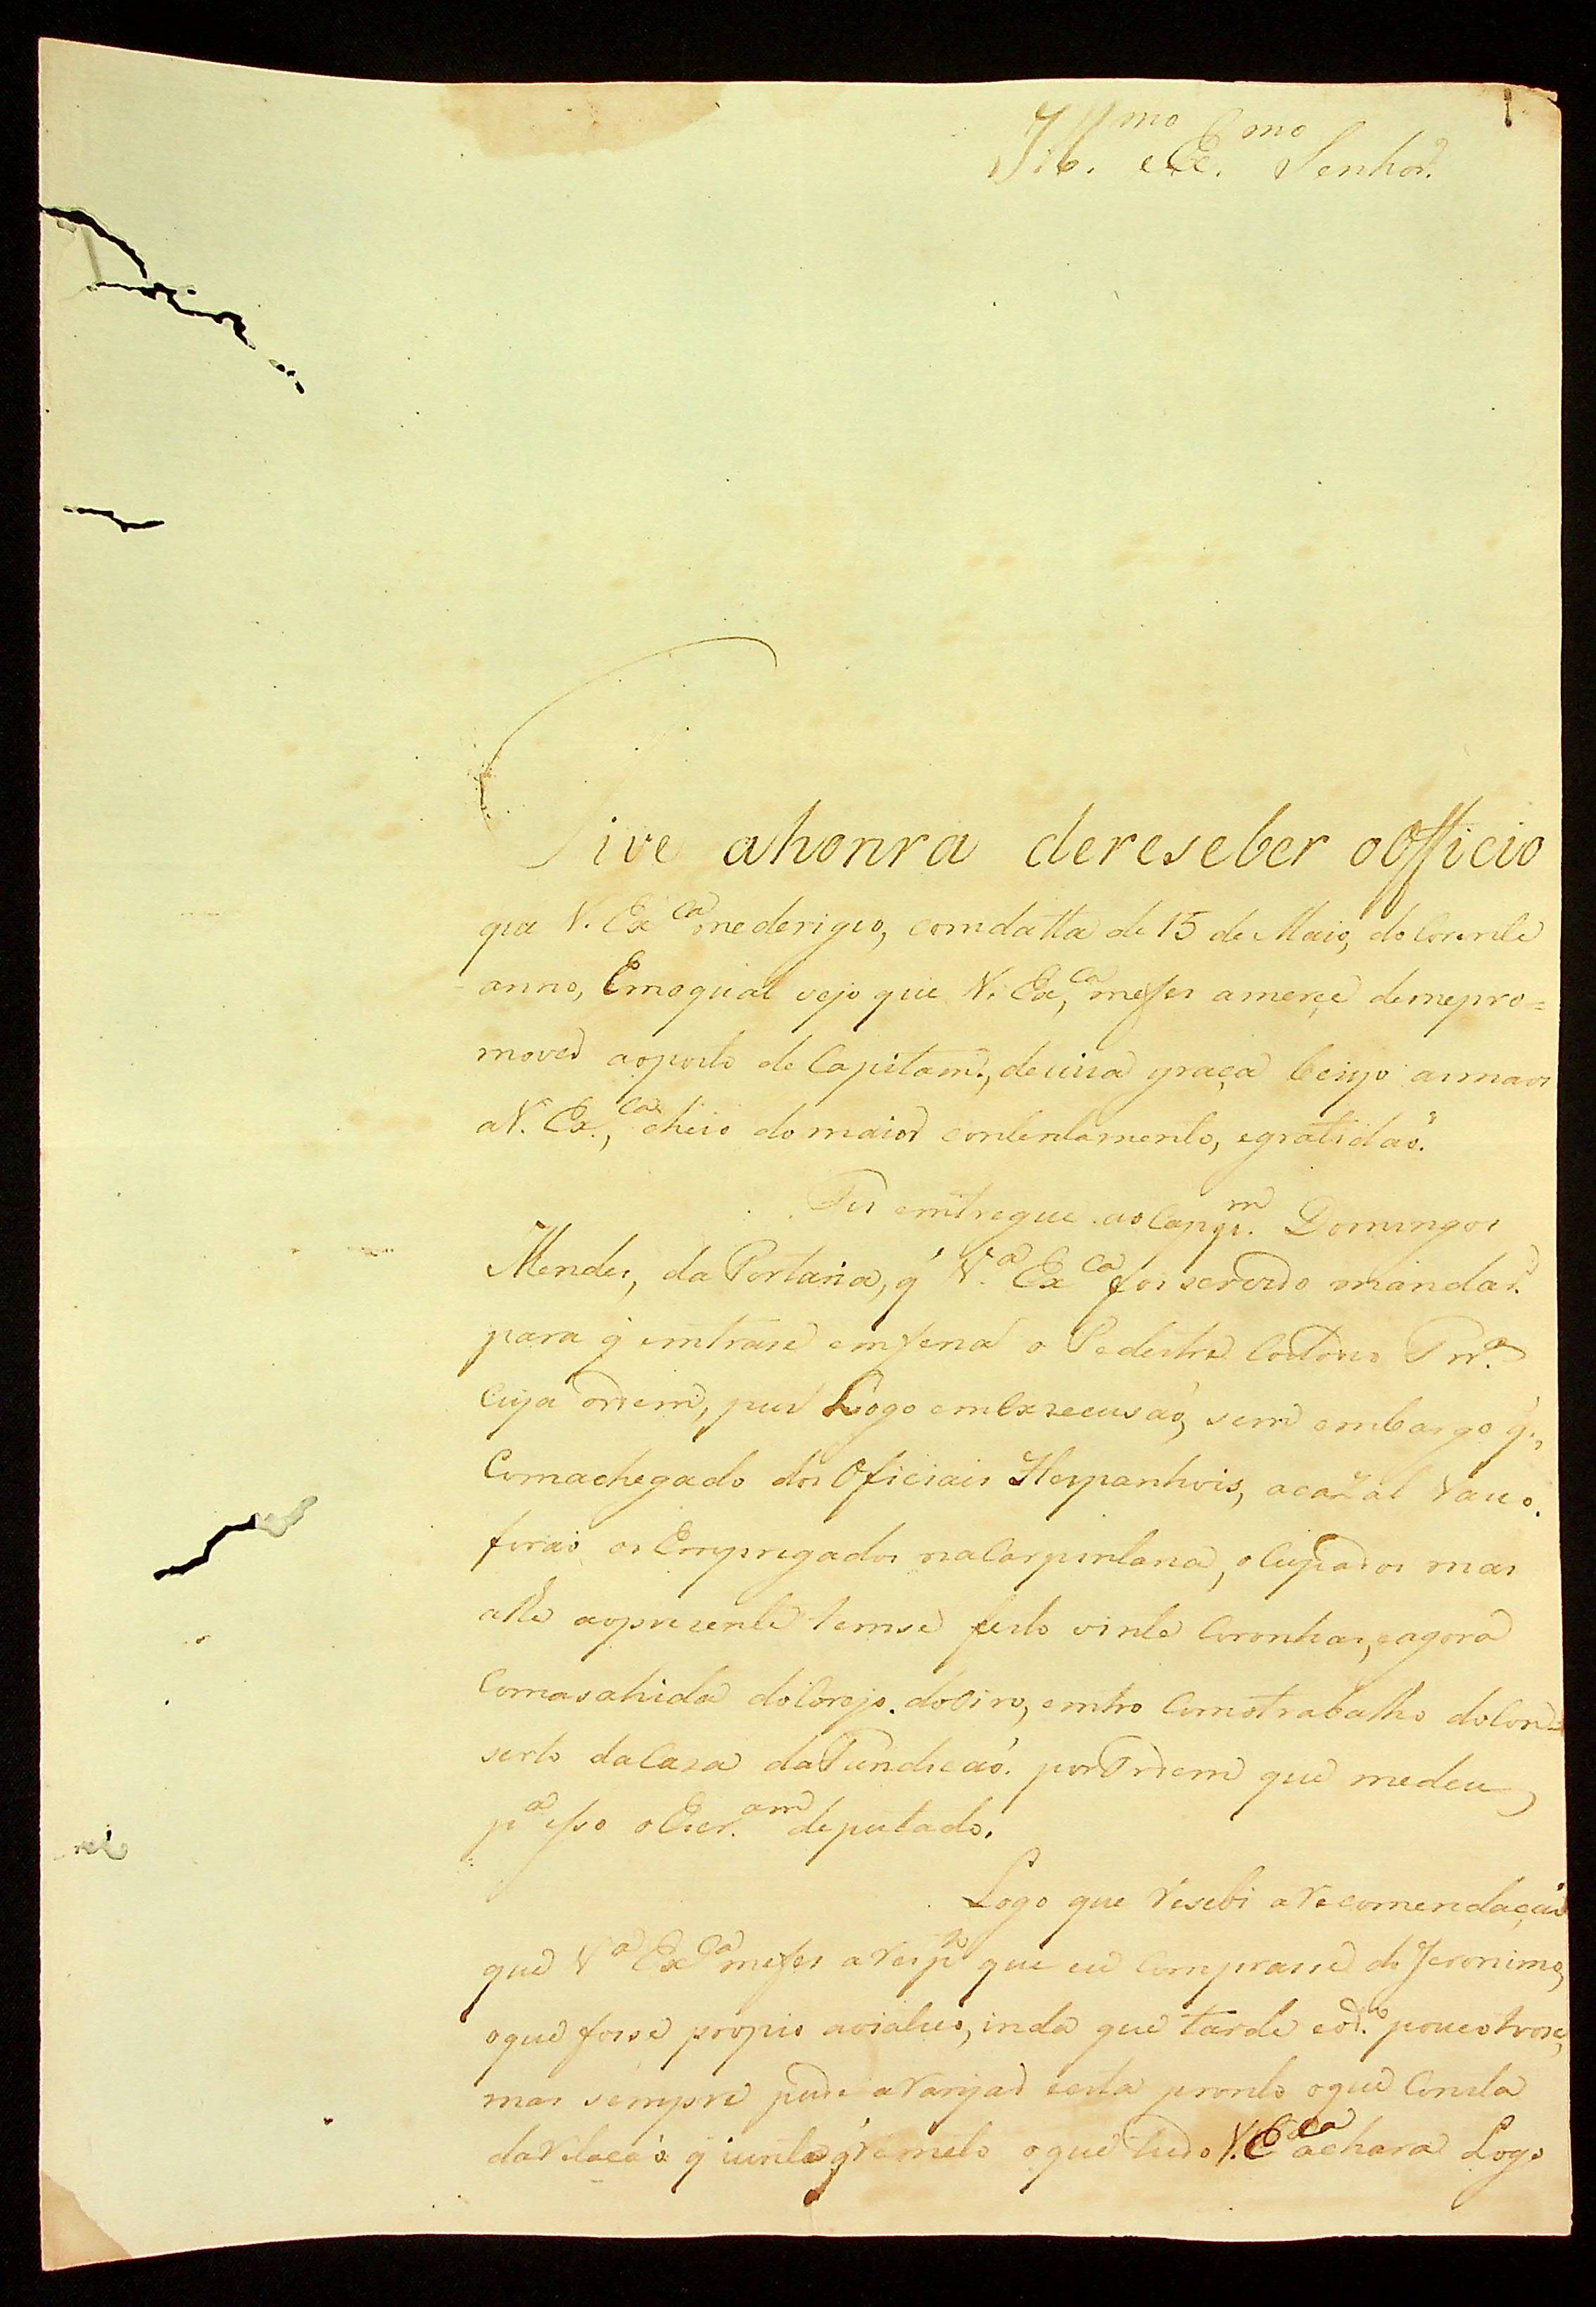 Ill.mo e Ex.mo Senhor.
Tive ahonra dereseber oOfficio
que V. Ex.ca mederigio, comdatta de 15 de Maio, do Corente
anno, Emoqual vejo que V. Ex.ca mefes amerçe demepro=
mover aoposto de Capitam, decuia graça beijo asmaos
aV. Ex.ca, cheio do maior contentamento, egratidaõ.
Fis emtregue ao Domingos
Mendes, da Portaria, q' V.a Ex.ca foi servido mandar.
para q' emtrase em o Pedestre
Cuja ordem, pus Logo emExzecusaõ, sem embargo q',
Comachegada dos Oficiais Hespanhois,
foraõ os Empregados naCarpintaria, oCupados mas
atte aoprezente temse feito vinte Coronhas, eagora
Comasahida do entro Comotrabalho doCon=
serto daCaza daFundicaõ. porOrdem que medeu
p.a isso oEscr.am deputado.
Logo que resebi arecomendaçaõ
que V.a Ex.ca mefes aresp.to que eu Comprasse do Jeronimo,
oque fosse propio inda que tarde
mas sempre pude aranjar esta pronto oque Consta
darelacaõ q' junto remeto oque tudo V. E.ca achara Logo